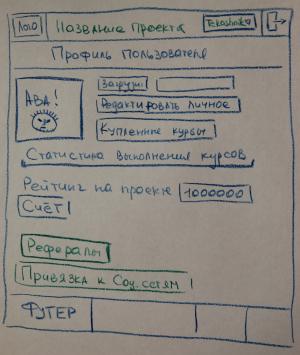 Лого Название проекта
Профиль пользователя
АВА!
Загрузи
Редактировать личное
Купленные курсы
Статистика выполнения курсов
Рейтинг на проекте 1000000
Счёт
Рефералы
Привязка к Соц. сетям
ФУТЕР